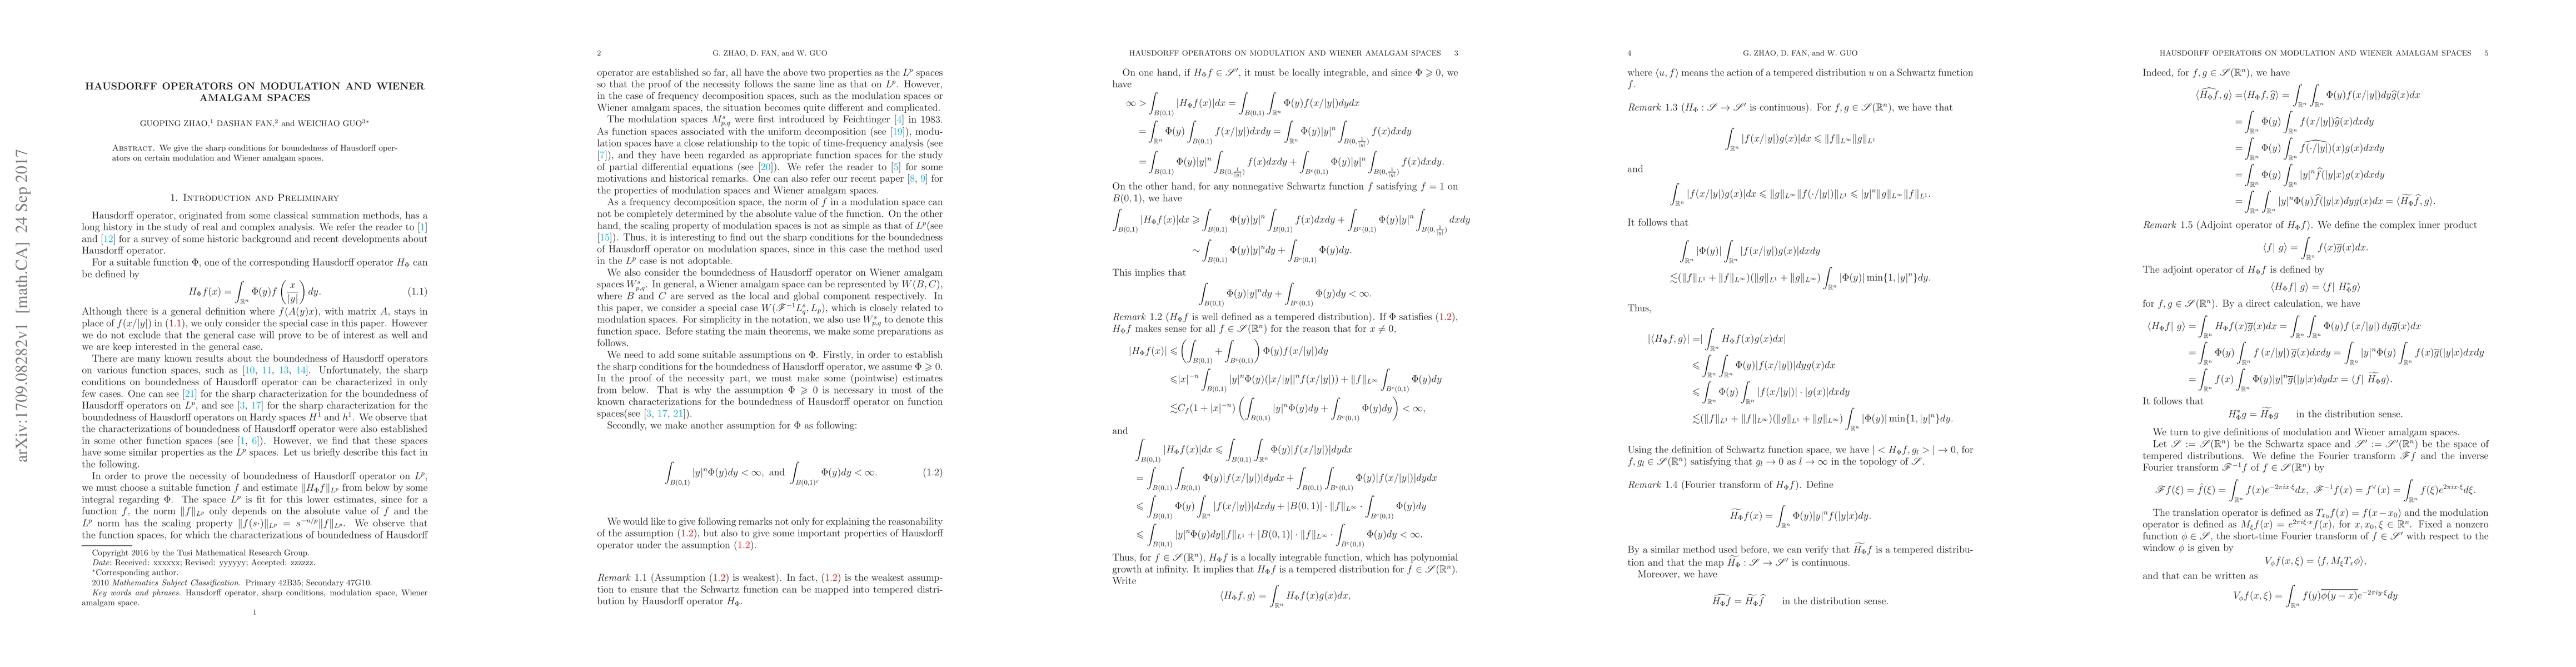 arXiv:1709.08282v1 [math.CA] 24 Sep 2017
HAUSDORFF OPERATORS ON MODULATION AND WIENER
AMALGAM SPACES
GUOPING ZHAO,¹ DASHAN FAN,² and WEICHAO GUO³*
ABSTRACT. We give the sharp conditions for boundedness of Hausdorff oper-
ators on certain modulation and Wiener amalgam spaces.
1. INTRODUCTION AND PRELIMINARY
Hausdorff operator, originated from some classical summation methods, has a
long history in the study of real and complex analysis. We refer the reader to [1]
and [12] for a survey of some historic background and recent developments about
Hausdorff operator.
For a suitable function Φ, one of the corresponding Hausdorff operator H_Φ can
be defined by
H_Φ f(x) = ∫_{ℝⁿ} Φ(y) f (x/|y|) dy. (1.1)
Although there is a general definition where f(A(y)x), with matrix A, stays in
place of f(x/|y|) in (1.1), we only consider the special case in this paper. However
we do not exclude that the general case will prove to be of interest as well and
we are keep interested in the general case.
There are many known results about the boundedness of Hausdorff operators
on various function spaces, such as [10, 11, 13, 14]. Unfortunately, the sharp
conditions on boundedness of Hausdorff operator can be characterized in only
few cases. One can see [21] for the sharp characterization for the boundedness of
Hausdorff operators on L^p, and see [3, 17] for the sharp characterization for the
boundedness of Hausdorff operators on Hardy spaces H¹ and h¹. We observe that
the characterizations of boundedness of Hausdorff operator were also established
in some other function spaces (see [1, 6]). However, we find that these spaces
have some similar properties as the L^p spaces. Let us briefly describe this fact in
the following.
In order to prove the necessity of boundedness of Hausdorff operator on L^p,
we must choose a suitable function f and estimate ‖H_Φ f‖_{L^p} from below by some
integral regarding Φ. The space L^p is fit for this lower estimates, since for a
function f, the norm ‖f‖_{L^p} only depends on the absolute value of f and the
L^p norm has the scaling property ‖f(s·)‖_{L^p} = s^{-n/p}‖f‖_{L^p}. We observe that
the function spaces, for which the characterizations of boundedness of Hausdorff
Copyright 2016 by the Tusi Mathematical Research Group.
Date: Received: xxxxxx; Revised: yyyyyy; Accepted: zzzzzz.
*Corresponding author.
2010 Mathematics Subject Classification. Primary 42B35; Secondary 47G10.
Key words and phrases. Hausdorff operator, sharp conditions, modulation space, Wiener
amalgam space.
1
2 G. ZHAO, D. FAN, and W. GUO
operator are established so far, all have the above two properties as the L^p spaces
so that the proof of the necessity follows the same line as that on L^p. However,
in the case of frequency decomposition spaces, such as the modulation spaces or
Wiener amalgam spaces, the situation becomes quite different and complicated.
The modulation spaces M^s_{p,q} were first introduced by Feichtinger [4] in 1983.
As function spaces associated with the uniform decomposition (see [19]), modu-
lation spaces have a close relationship to the topic of time-frequency analysis (see
[7]), and they have been regarded as appropriate function spaces for the study
of partial differential equations (see [20]). We refer the reader to [5] for some
motivations and historical remarks. One can also refer our recent paper [8, 9] for
the properties of modulation spaces and Wiener amalgam spaces.
As a frequency decomposition space, the norm of f in a modulation space can
not be completely determined by the absolute value of the function. On the other
hand, the scaling property of modulation spaces is not as simple as that of L^p(see
[15]). Thus, it is interesting to find out the sharp conditions for the boundedness
of Hausdorff operator on modulation spaces, since in this case the method used
in the L^p case is not adoptable.
We also consider the boundedness of Hausdorff operator on Wiener amalgam
spaces W^s_{p,q}. In general, a Wiener amalgam space can be represented by W(B, C),
where B and C are served as the local and global component respectively. In
this paper, we consider a special case W(ℱ^{-1}L^s_q, L_p), which is closely related to
modulation spaces. For simplicity in the notation, we also use W^s_{p,q} to denote this
function space. Before stating the main theorems, we make some preparations as
follows.
We need to add some suitable assumptions on Φ. Firstly, in order to establish
the sharp conditions for the boundedness of Hausdorff operator, we assume Φ ⩾ 0.
In the proof of the necessity part, we must make some (pointwise) estimates
from below. That is why the assumption Φ ⩾ 0 is necessary in most of the
known characterizations for the boundedness of Hausdorff operator on function
spaces(see [3, 17, 21]).
Secondly, we make another assumption for Φ as following:
∫_{B(0,1)} |y|ⁿΦ(y)dy < ∞, and ∫_{B(0,1)^c} Φ(y)dy < ∞. (1.2)
We would like to give following remarks not only for explaining the reasonability
of the assumption (1.2), but also to give some important properties of Hausdorff
operator under the assumption (1.2).
Remark 1.1 (Assumption (1.2) is weakest). In fact, (1.2) is the weakest assump-
tion to ensure that the Schwartz function can be mapped into tempered distri-
bution by Hausdorff operator H_Φ.
HAUSDORFF OPERATORS ON MODULATION AND WIENER AMALGAM SPACES 3
On one hand, if H_Φ f ∈ 𝒮′, it must be locally integrable, and since Φ ⩾ 0, we
have
∞ > ∫_{B(0,1)} |H_Φ f(x)|dx = ∫_{B(0,1)} ∫_{ℝⁿ} Φ(y)f(x/|y|)dydx
= ∫_{ℝⁿ} Φ(y) ∫_{B(0,1)} f(x/|y|)dxdy = ∫_{ℝⁿ} Φ(y)|y|ⁿ ∫_{B(0,1/|y|)} f(x)dxdy
= ∫_{B(0,1)} Φ(y)|y|ⁿ ∫_{B(0,1/|y|)} f(x)dxdy + ∫_{B^c(0,1)} Φ(y)|y|ⁿ ∫_{B(0,1/|y|)} f(x)dxdy.
On the other hand, for any nonnegative Schwartz function f satisfying f = 1 on
B(0, 1), we have
∫_{B(0,1)} |H_Φ f(x)|dx ⩾ ∫_{B(0,1)} Φ(y)|y|ⁿ ∫_{B(0,1)} f(x)dxdy + ∫_{B^c(0,1)} Φ(y)|y|ⁿ ∫_{B(0,1/|y|)} dxdy
∼ ∫_{B(0,1)} Φ(y)|y|ⁿdy + ∫_{B^c(0,1)} Φ(y)dy.
This implies that
∫_{B(0,1)} Φ(y)|y|ⁿdy + ∫_{B^c(0,1)} Φ(y)dy < ∞.
Remark 1.2 (H_Φ f is well defined as a tempered distribution). If Φ satisfies (1.2),
H_Φ f makes sense for all f ∈ 𝒮(ℝⁿ) for the reason that for x ≠ 0,
|H_Φ f(x)| ⩽ (∫_{B(0,1)} + ∫_{B^c(0,1)}) Φ(y)f(x/|y|)dy
⩽|x|^{-n} ∫_{B(0,1)} |y|ⁿΦ(y)(|x/|y||ⁿf(x/|y|)) + ‖f‖_{L^∞} ∫_{B^c(0,1)} Φ(y)dy
≲C_f(1 + |x|^{-n}) (∫_{B(0,1)} |y|ⁿΦ(y)dy + ∫_{B^c(0,1)} Φ(y)dy) < ∞,
and
∫_{B(0,1)} |H_Φ f(x)|dx ⩽ ∫_{B(0,1)} ∫_{ℝⁿ} Φ(y)|f(x/|y|)|dydx
= ∫_{B(0,1)} ∫_{B(0,1)} Φ(y)|f(x/|y|)|dydx + ∫_{B(0,1)} ∫_{B^c(0,1)} Φ(y)|f(x/|y|)|dydx
⩽ ∫_{B(0,1)} Φ(y) ∫_{ℝⁿ} |f(x/|y|)|dxdy + |B(0, 1)| · ‖f‖_{L^∞} · ∫_{B^c(0,1)} Φ(y)dy
⩽ ∫_{B(0,1)} |y|ⁿΦ(y)dy‖f‖_{L¹} + |B(0, 1)| · ‖f‖_{L^∞} · ∫_{B^c(0,1)} Φ(y)dy < ∞.
Thus, for f ∈ 𝒮(ℝⁿ), H_Φ f is a locally integrable function, which has polynomial
growth at infinity. It implies that H_Φ f is a tempered distribution for f ∈ 𝒮(ℝⁿ).
Write
⟨H_Φ f, g⟩ = ∫_{ℝⁿ} H_Φ f(x)g(x)dx,
4 G. ZHAO, D. FAN, and W. GUO
where ⟨u, f⟩ means the action of a tempered distribution u on a Schwartz function
f.
Remark 1.3 (H_Φ : 𝒮 → 𝒮′ is continuous). For f, g ∈ 𝒮(ℝⁿ), we have that
∫_{ℝⁿ} |f(x/|y|)g(x)|dx ⩽ ‖f‖_{L^∞}‖g‖_{L¹}
and
∫_{ℝⁿ} |f(x/|y|)g(x)|dx ⩽ ‖g‖_{L^∞}‖f(·/|y|)‖_{L¹} ⩽ |y|ⁿ‖g‖_{L^∞}‖f‖_{L¹}.
It follows that
∫_{ℝⁿ} |Φ(y)| ∫_{ℝⁿ} |f(x/|y|)g(x)|dxdy
≲(‖f‖_{L¹} + ‖f‖_{L^∞})(‖g‖_{L¹} + ‖g‖_{L^∞}) ∫_{ℝⁿ} |Φ(y)| min{1, |y|ⁿ}dy.
Thus,
|⟨H_Φ f, g⟩| =| ∫_{ℝⁿ} H_Φ f(x)g(x)dx|
⩽ ∫_{ℝⁿ} ∫_{ℝⁿ} Φ(y)|f(x/|y|)|dyg(x)dx
⩽ ∫_{ℝⁿ} Φ(y) ∫_{ℝⁿ} |f(x/|y|)| · |g(x)|dxdy
≲(‖f‖_{L¹} + ‖f‖_{L^∞})(‖g‖_{L¹} + ‖g‖_{L^∞}) ∫_{ℝⁿ} |Φ(y)| min{1, |y|ⁿ}dy.
Using the definition of Schwartz function space, we have | < H_Φ f, g_l > | → 0, for
f, g_l ∈ 𝒮(ℝⁿ) satisfying that g_l → 0 as l → ∞ in the topology of 𝒮.
Remark 1.4 (Fourier transform of H_Φ f). Define
H̃_Φ f(x) = ∫_{ℝⁿ} Φ(y)|y|ⁿf(|y|x)dy.
By a similar method used before, we can verify that H̃_Φ f is a tempered distribu-
tion and that the map H̃_Φ : 𝒮 → 𝒮′ is continuous.
Moreover, we have
\widehat{H_Φ f} = H̃_Φ f̂ in the distribution sense.
HAUSDORFF OPERATORS ON MODULATION AND WIENER AMALGAM SPACES 5
Indeed, for f, g ∈ 𝒮(ℝⁿ), we have
⟨\widehat{H_Φ f}, g⟩ =⟨H_Φ f, ĝ⟩ = ∫_{ℝⁿ} ∫_{ℝⁿ} Φ(y)f(x/|y|)dyĝ(x)dx
= ∫_{ℝⁿ} Φ(y) ∫_{ℝⁿ} f(x/|y|)ĝ(x)dxdy
= ∫_{ℝⁿ} Φ(y) ∫_{ℝⁿ} \widehat{f(·/|y|)}(x)g(x)dxdy
= ∫_{ℝⁿ} Φ(y) ∫_{ℝⁿ} |y|ⁿf̂(|y|x)g(x)dxdy
= ∫_{ℝⁿ} ∫_{ℝⁿ} |y|ⁿΦ(y)f̂(|y|x)dyg(x)dx = ⟨H̃_Φ f̂, g⟩.
Remark 1.5 (Adjoint operator of H_Φ f). We define the complex inner product
⟨f| g⟩ = ∫_{ℝⁿ} f(x)g̅(x)dx.
The adjoint operator of H_Φ f is defined by
⟨H_Φ f| g⟩ = ⟨f| H*_Φ g⟩
for f, g ∈ 𝒮(ℝⁿ). By a direct calculation, we have
⟨H_Φ f| g⟩ = ∫_{ℝⁿ} H_Φ f(x)g̅(x)dx = ∫_{ℝⁿ} ∫_{ℝⁿ} Φ(y)f (x/|y|) dyg̅(x)dx
= ∫_{ℝⁿ} Φ(y) ∫_{ℝⁿ} f (x/|y|) g̅(x)dxdy = ∫_{ℝⁿ} |y|ⁿΦ(y) ∫_{ℝⁿ} f(x)g̅(|y|x)dxdy
= ∫_{ℝⁿ} f(x) ∫_{ℝⁿ} Φ(y)|y|ⁿg̅(|y|x)dydx = ⟨f| H̃_Φ g⟩.
It follows that
H*_Φ g = H̃_Φ g in the distribution sense.
We turn to give definitions of modulation and Wiener amalgam spaces.
Let 𝒮 := 𝒮(ℝⁿ) be the Schwartz space and 𝒮′ := 𝒮′(ℝⁿ) be the space of
tempered distributions. We define the Fourier transform ℱf and the inverse
Fourier transform ℱ^{-1}f of f ∈ 𝒮(ℝⁿ) by
ℱf(ξ) = f̂(ξ) = ∫_{ℝⁿ} f(x)e^{-2πix·ξ}dx, ℱ^{-1}f(x) = f^∨(x) = ∫_{ℝⁿ} f(ξ)e^{2πix·ξ}dξ.
The translation operator is defined as T_{x₀}f(x) = f(x − x₀) and the modulation
operator is defined as M_ξ f(x) = e^{2πiξ·x}f(x), for x, x₀, ξ ∈ ℝⁿ. Fixed a nonzero
function ϕ ∈ 𝒮, the short-time Fourier transform of f ∈ 𝒮′ with respect to the
window ϕ is given by
V_ϕ f(x, ξ) = ⟨f, M_ξ T_x ϕ⟩,
and that can be written as
V_ϕ f(x, ξ) = ∫_{ℝⁿ} f(y)\overline{ϕ(y − x)}e^{-2πiy·ξ}dy